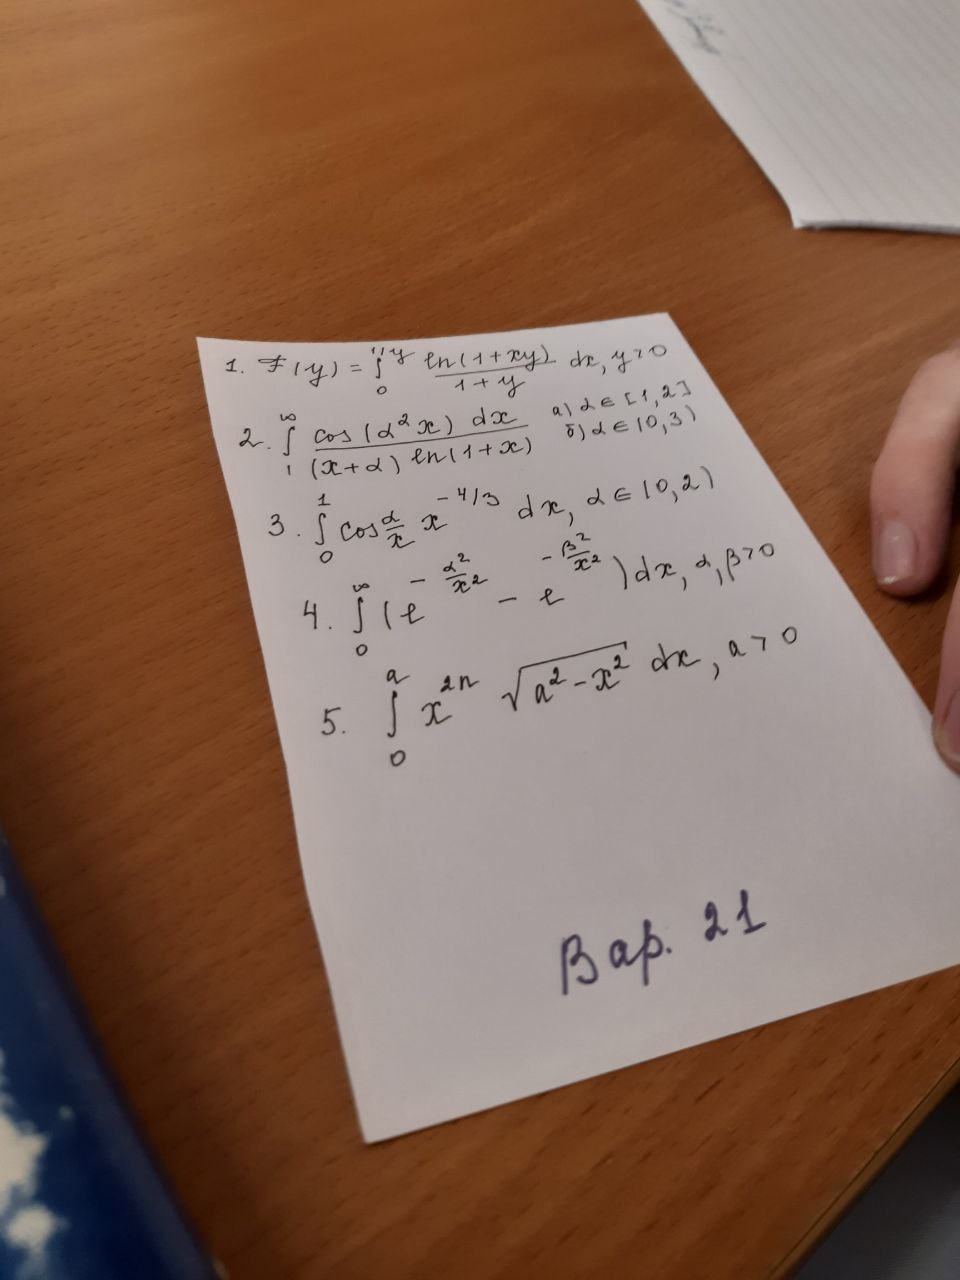 1. F(y) = ∫₀^{1/y} ln(1+xy)/(1+y) dx, y>0
2. ∫₁^∞ cos(α²x) dx / ((x+α) ln(1+x)) а) α ∈ [1,2] б) α ∈ (0,3)
3. ∫₀¹ cos α/x x^{-4/3} dx, α ∈ (0,2)
4. ∫₀^∞ (e^{-α²/x²} - e^{-β²/x²}) dx, α,β>0
5. ∫₀^a x^{2n} √(a²-x²) dx, a>0
Вар. 21